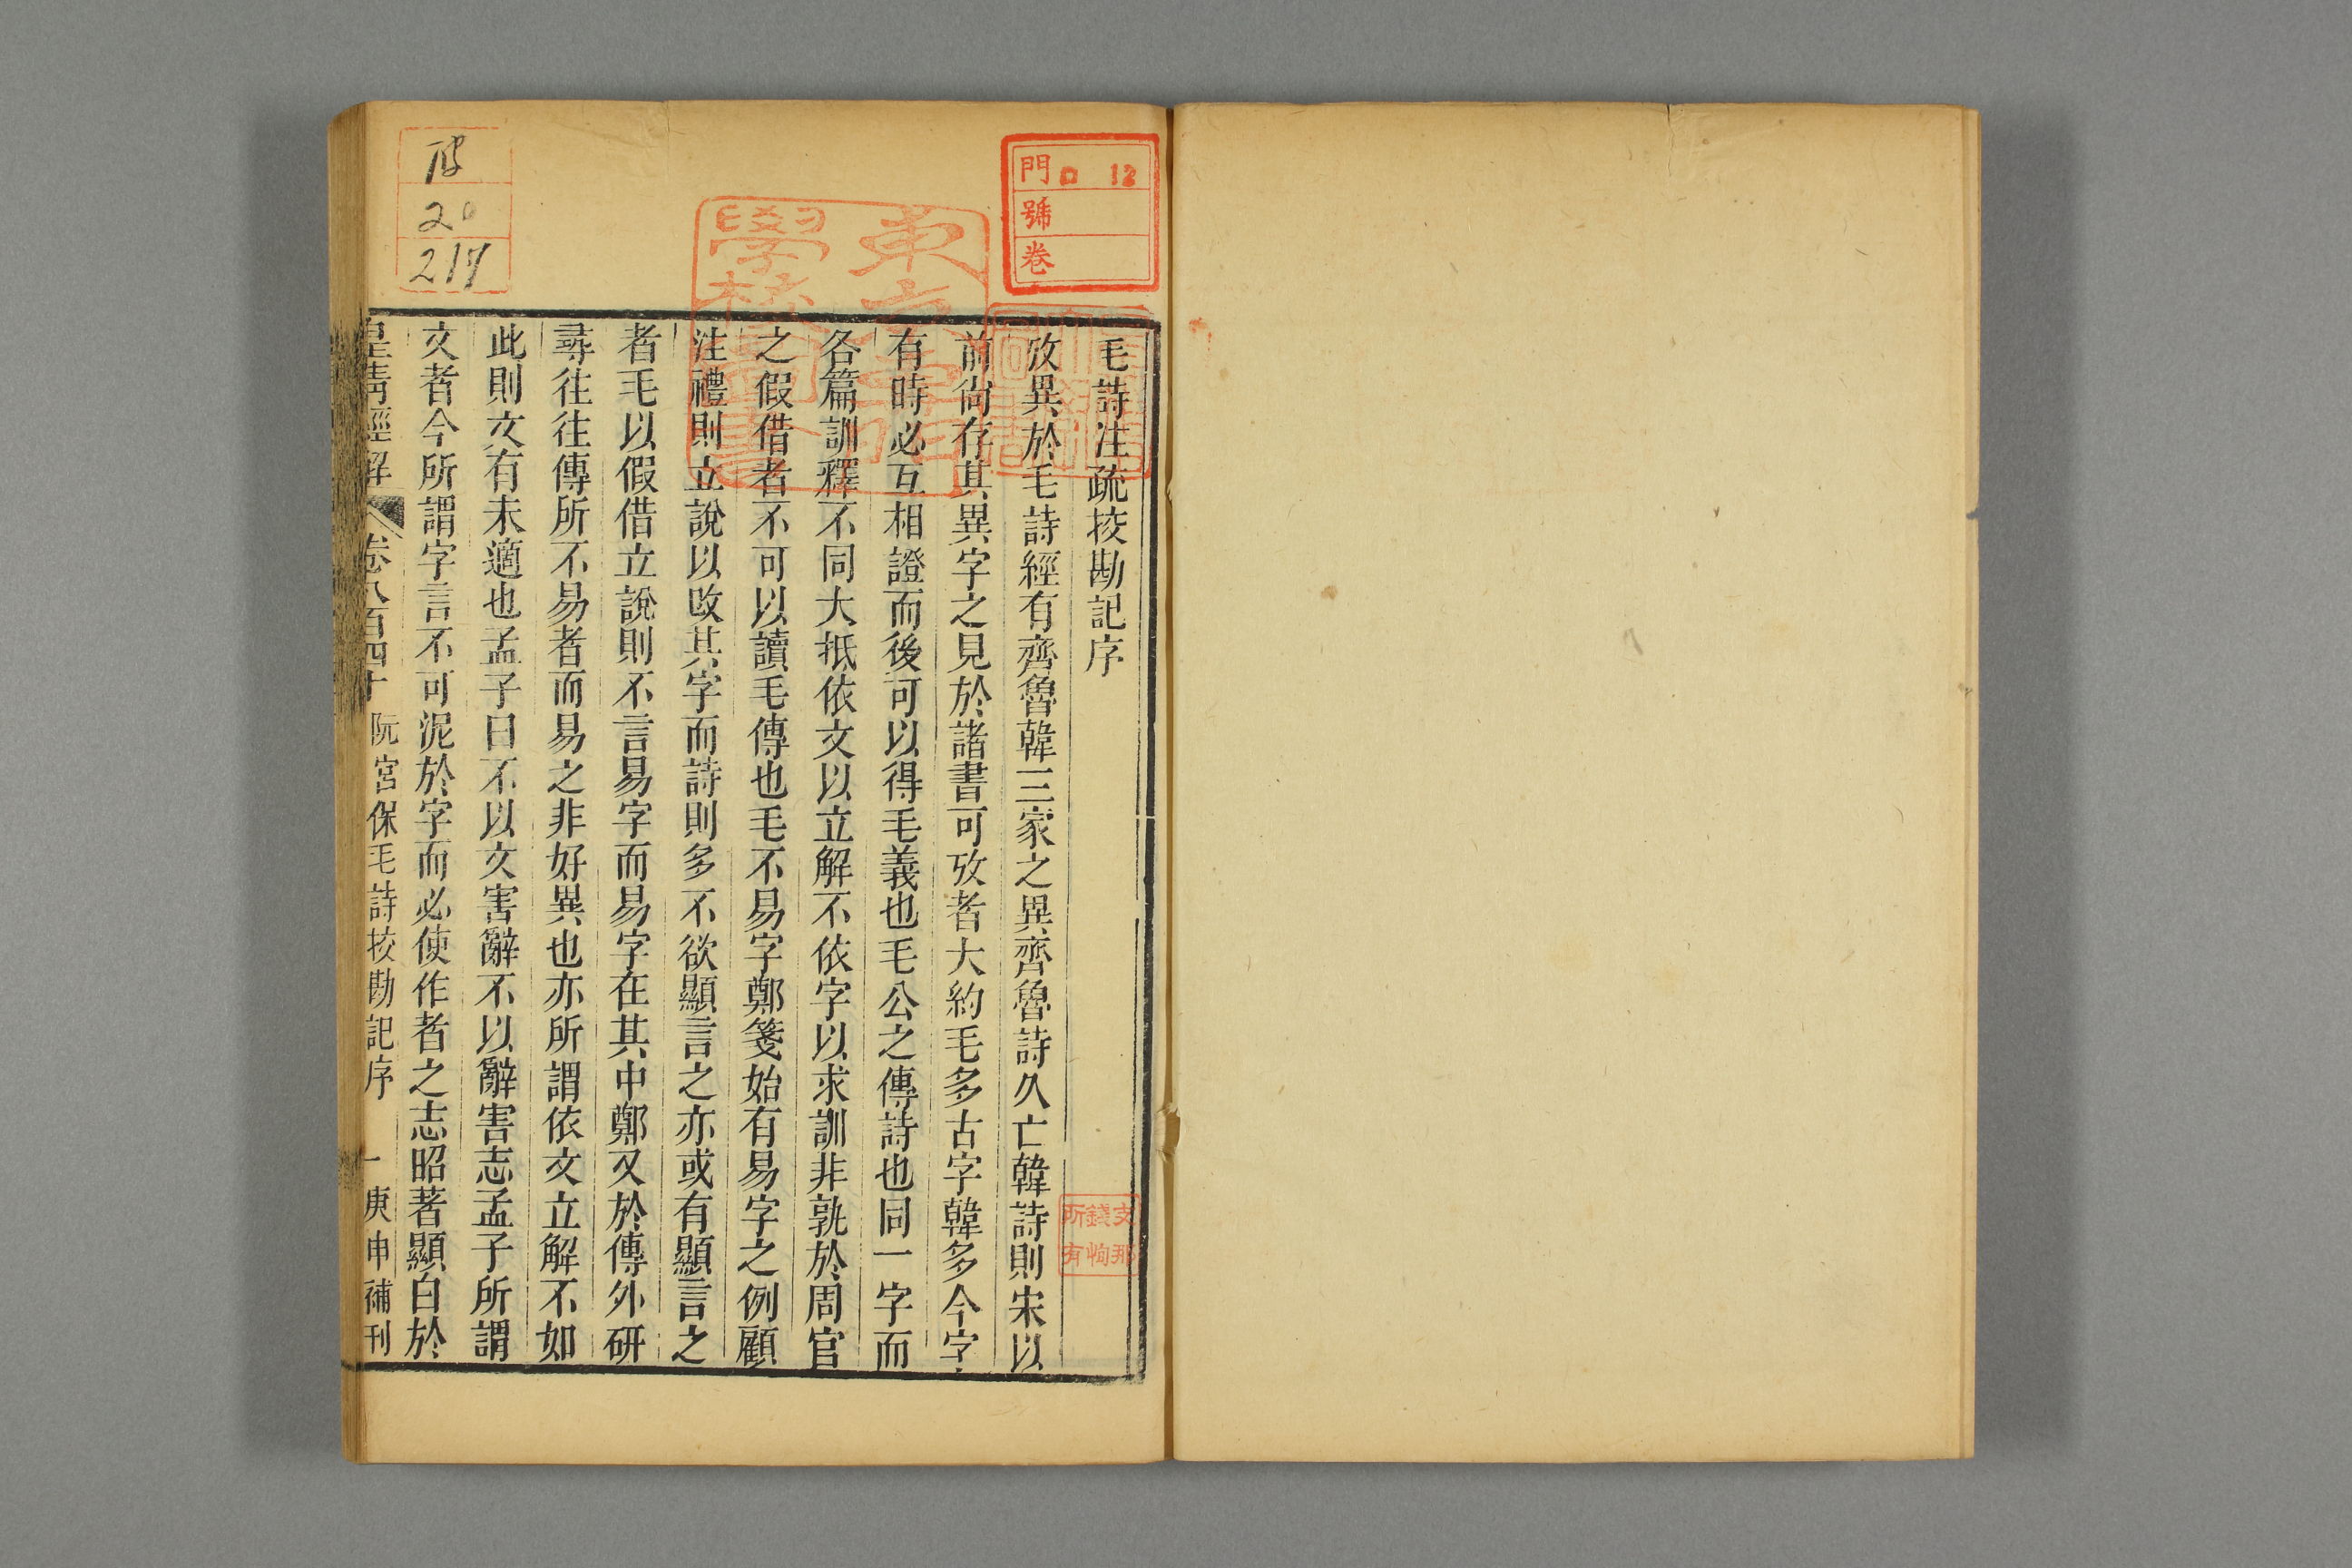 毛詩注疏挍勘記序
攷異於毛詩經有齊魯韓三家之異齊魯詩久亡韓詩則宋以
前尙存其異字之見於諸書可攷者大約毛多古字韓多今字
有時必互相證而後可以得毛義也毛公之傳詩也同一字而
各篇訓釋不同大抵依文以立解不依字以求訓非孰於周官
之假借者不可以讀毛傳也毛不易字鄭箋始有易字之例顧
注禮則立說以攺其字而詩則多不欲顯言之亦或有顯言之
者毛以假借立說則不言易字而易字在其中鄭又於傳外硏
尋往往傳所不易者而易之非好異也亦所謂依文立解不如
此則文有未適也孟子曰不以文害辭不以辭害志孟子所謂
文者今所謂字言不可泥於字而必使作者之志昭著顯白於
皇淸經解 卷八百四十 阮宮保毛詩挍勘記序 一 庚申補刊
門 口 12
號
卷
20
217
東方
學校
支那
錢恂
所有